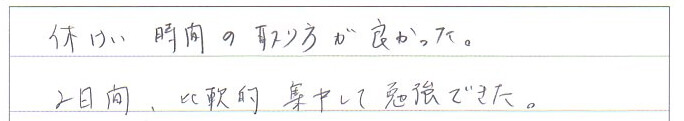 休けい時間の取り方が良かった。
2日間、比較的集中して勉強できた。